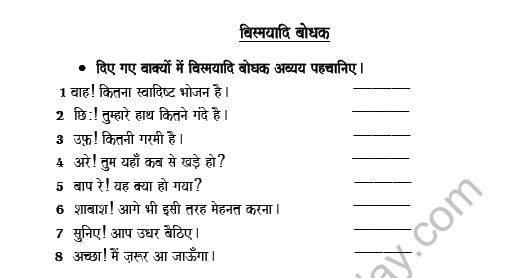 विस्मयादि बोधक
• दिए गए वाक्यों में विस्मयादि बोधक अव्यय पहचानिए।
1 वाह! कितना स्वादिष्ट भोजन है। ______
2 छि:! तुम्हारे हाथ कितने गंदे है। ______
3 उफ़! कितनी गरमी है। ______
4 अरे! तुम यहाँ कब से खड़े हो? ______
5 बाप रे! यह क्या हो गया? ______
6 शाबाश! आगे भी इसी तरह मेहनत करना। ______
7 सुनिए! आप उधर बैठिए। ______
8 अच्छा! मैं ज़रूर आ जाऊँगा। ______